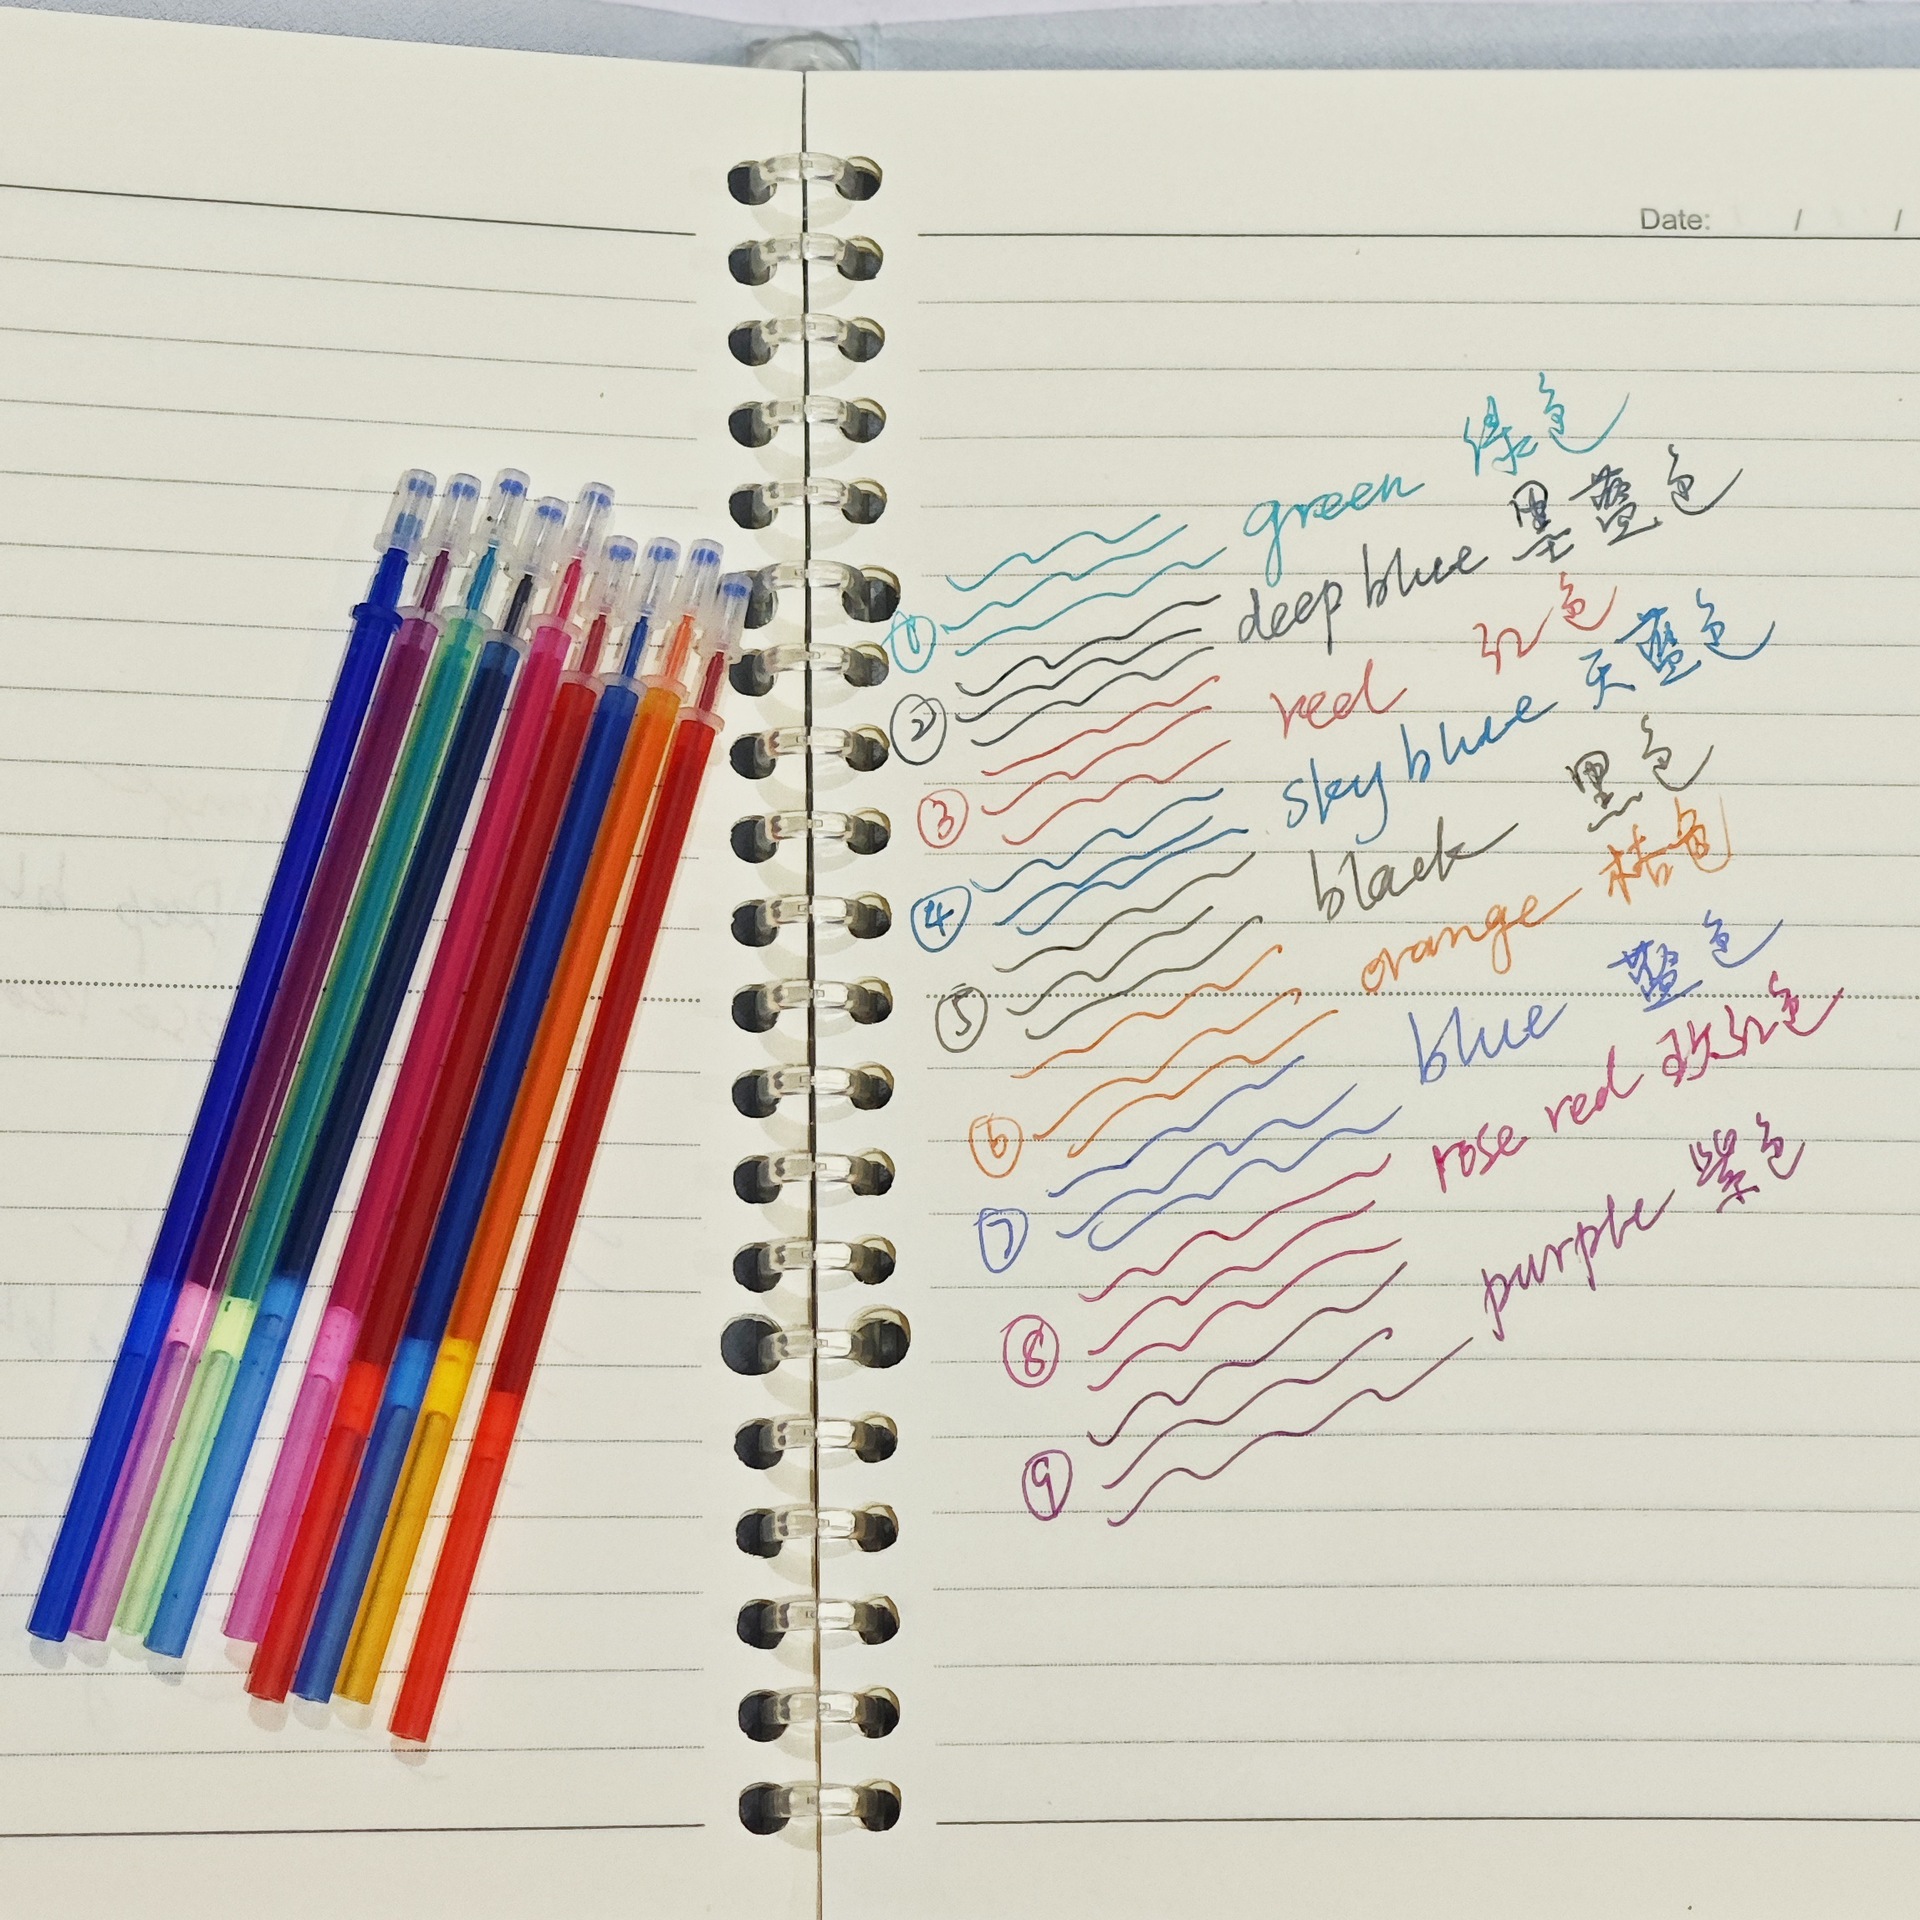 Date: / /
① green 绿色
② deep blue 墨蓝色
③ red 红色
④ sky blue 天蓝色
⑤ black 黑色
⑥ orange 桔色
⑦ blue 蓝色
⑧ rose red 玫红色
⑨ purple 紫色